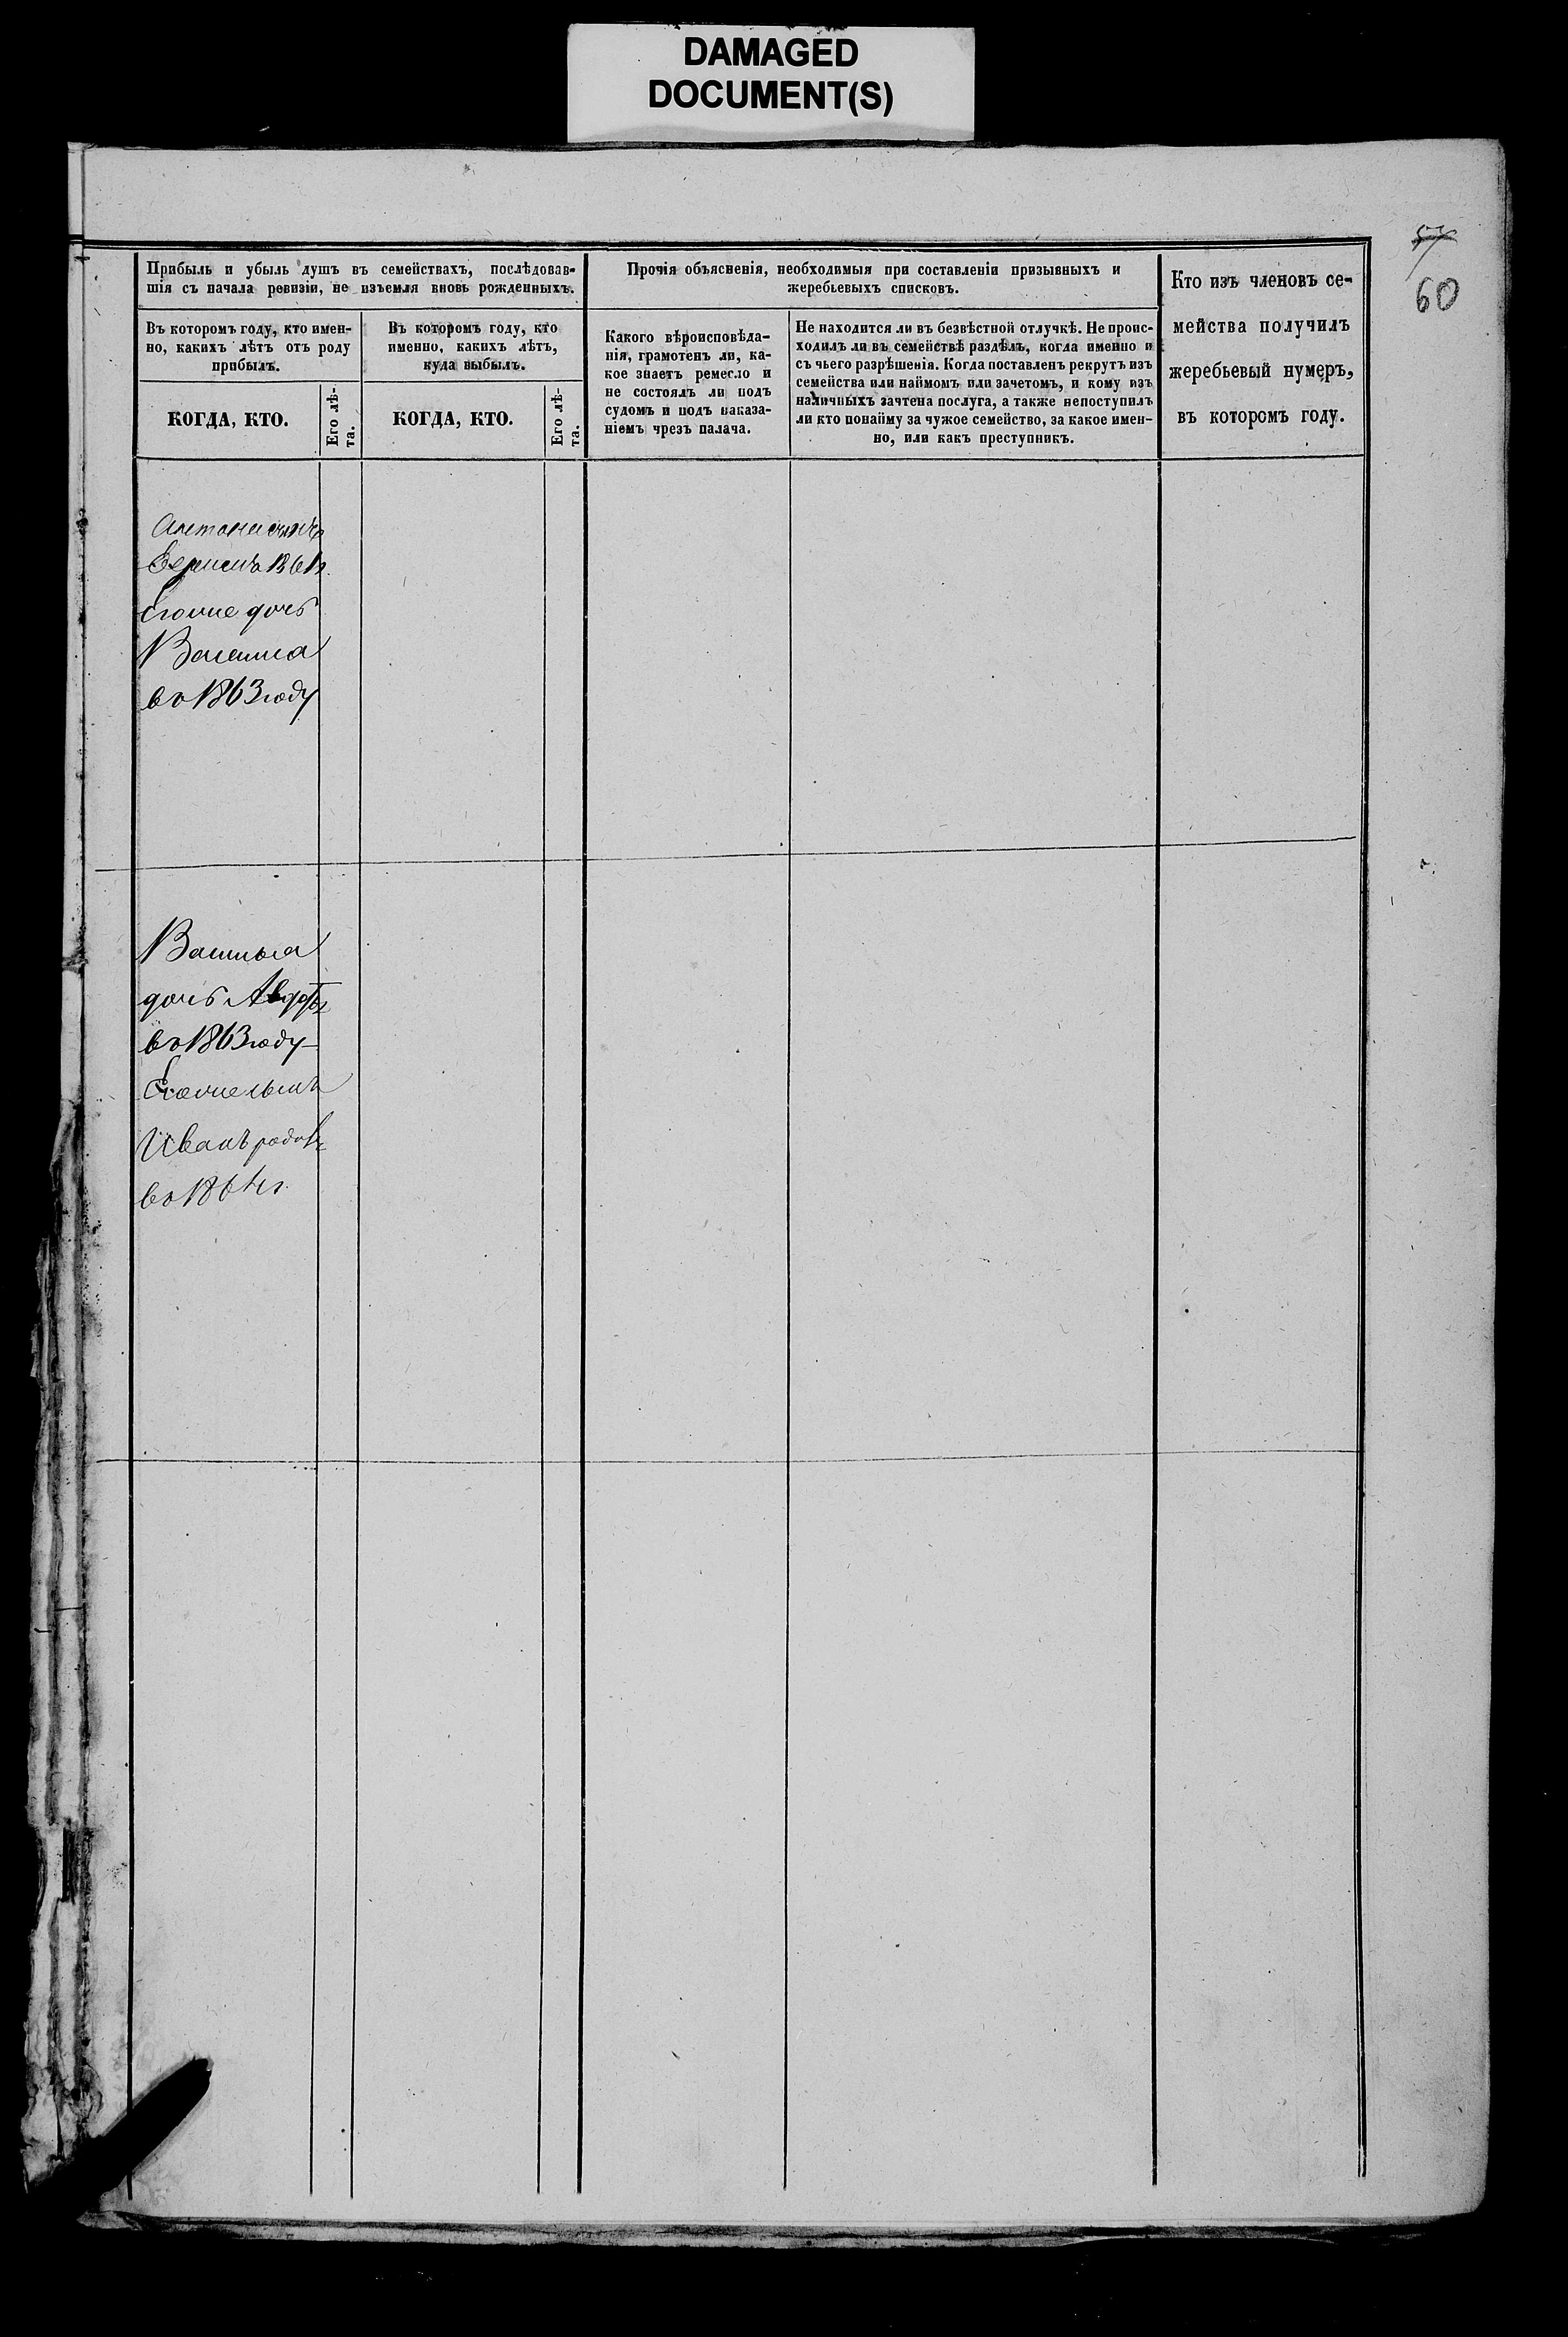 DAMAGED
DOCUMENT(S)
57
60
Прибыль и убыль душъ въ семействахъ, послѣдовав-
шія съ начала ревизіи, не изъемля вновь рожденныхъ.
Въ которомъ году, кто имен-
но, какихъ лѣтъ отъ роду
прибылъ.
КОГДА, КТО.
Его лѣ-
та.
Въ которомъ году, кто
именно, какихъ лѣтъ,
куда выбылъ.
КОГДА, КТО.
Его лѣ-
та.
Прочія объясненія, необходимыя при составленіи призывныхъ и
жеребьевыхъ списковъ.
Какого вѣроисповѣда-
нія, грамотенъ ли, ка-
кое знаетъ ремесло и
не состоялъ ли подъ
судомъ и подъ наказа-
ніемъ чрезъ палача.
Не находится ли въ безвѣстной отлучкѣ. Не проис-
ходилъ ли въ семействѣ раздѣлъ, когда именно и
съ чьего разрѣшенія. Когда поставленъ рекрутъ изъ
семейства или наймомъ или зачетомъ, и кому изъ
наличныхъ зачтена послуга, а также непоступилъ
ли кто понайму за чужое семейство, за какое имен-
но, или какъ преступникъ.
Кто изъ членовъ се-
мейства получилъ
жеребьевый нумеръ,
въ которомъ году.
дочь
во 1863 году
дочь
во 1863 году
Иванъ
во 1864 г.